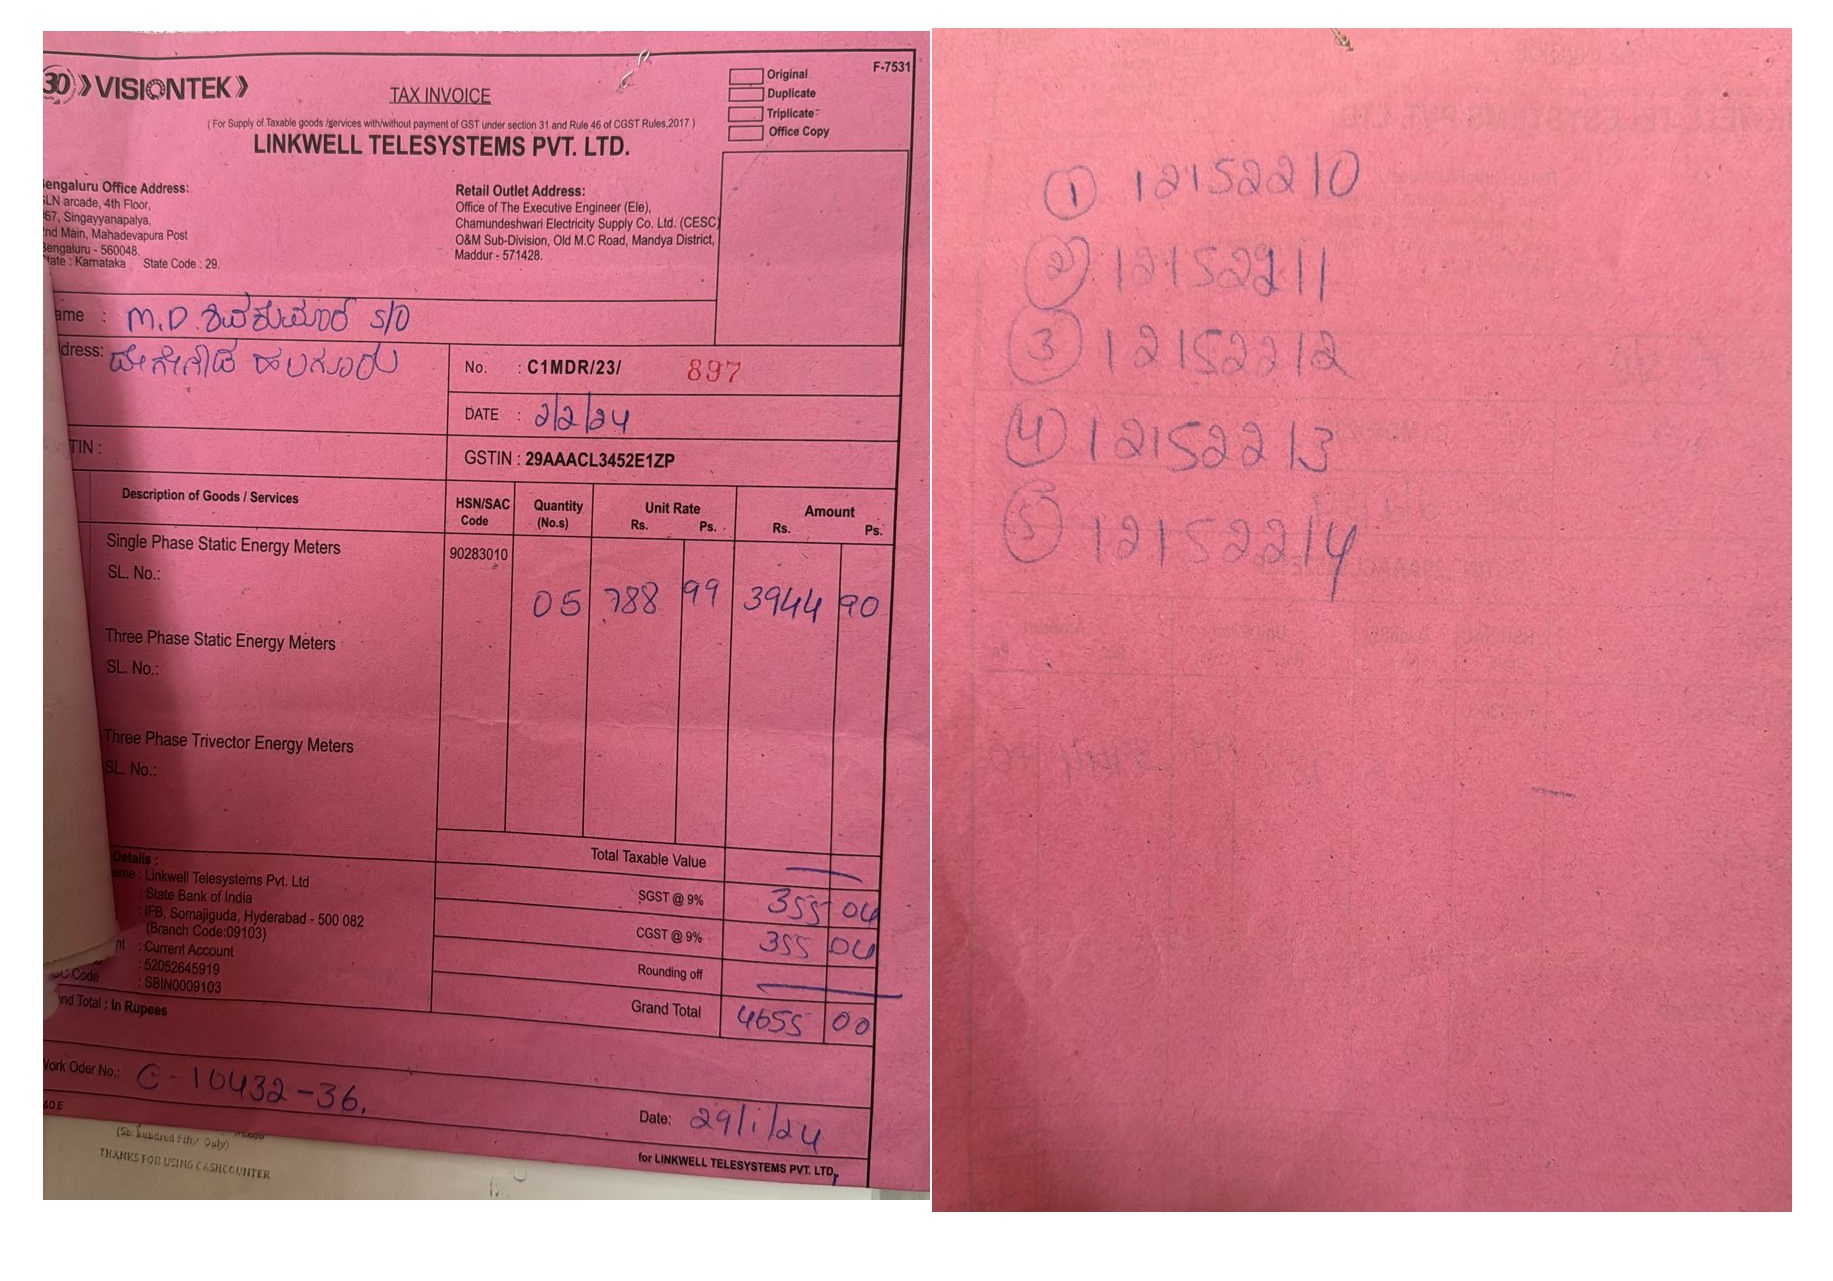 30 VISIONTEK
TAX INVOICE
F-7531
Original
Duplicate
Triplicate
Office Copy
( For Supply of Taxable goods /services with/without payment of GST under section 31 and Rule 46 of CGST Rules,2017 )
LINKWELL TELESYSTEMS PVT. LTD.
engaluru Office Address:
LN arcade, 4th Floor,
67, Singayyanapalya,
nd Main, Mahadevapura Post
engaluru - 560048.
tate : Karnataka State Code : 29.
Retail Outlet Address:
Office of The Executive Engineer (Ele),
Chamundeshwari Electricity Supply Co. Ltd. (CESC)
O&M Sub-Division, Old M.C Road, Mandya District,
Maddur - 571428.
ame : M.D. ಶಿವಕುಮಾರ್ S/O
dress: ಹಲಗೂರು
No. : C1MDR/23/ 897
DATE : 2/2/24
TIN :
GSTIN : 29AAACL3452E1ZP
Description of Goods / Services HSN/SAC Code Quantity (No.s) Unit Rate Rs. Ps. Amount Rs. Ps.
Single Phase Static Energy Meters 90283010
SL. No.: 05 788 99 3944 90
Three Phase Static Energy Meters
SL. No.:
Three Phase Trivector Energy Meters
SL. No.:
Total Taxable Value
SGST @ 9% 355 04
CGST @ 9% 355 04
Rounding off
Grand Total 4655 00
Details :
ame : Linkwell Telesystems Pvt. Ltd
: State Bank of India
: IFB, Somajiguda, Hyderabad - 500 082
(Branch Code:09103)
nt : Current Account
: 52052645919
SC Code : SBIN0009103
nd Total : In Rupees
Work Oder No.: C-10432-36.
Date: 29/1/24
&O E
for LINKWELL TELESYSTEMS PVT. LTD,
Hundred Fifty Only)
THANKS FOR USING CASHCOUNTER
1 12152210
2 12152211
3 12152212
4 12152213
5 12152214